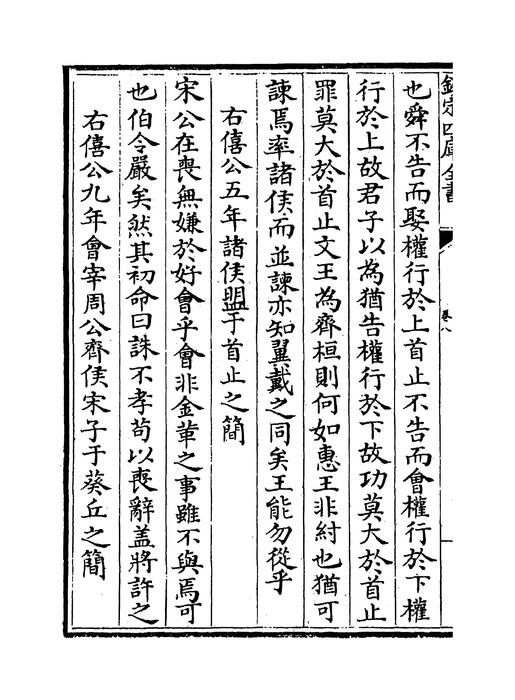 欽定四庫全書
卷八
也舜不告而娶權行於上首止不告而會權行於下權
行於上故君子以為猶告權行於下故功莫大於首止
罪莫大於首止文王為齊桓則何如惠王非紂也猶可
諫焉率諸侯而並諫亦知翼戴之同矣王能勿從乎
右僖公五年諸侯盟于首止之簡
宋公在喪無嫌於好會乎會非金革之事雖不與焉可
也伯令嚴矣然其初命曰誅不孝苟以喪辭盖將許之
右僖公九年會宰周公齊侯宋子于葵丘之簡